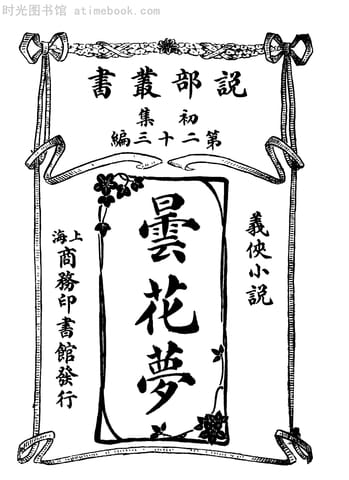 时光图书馆 atimebook.com
説部叢書
初集
第二十三編
義俠小説
曇花夢
上海
商務印書館發行